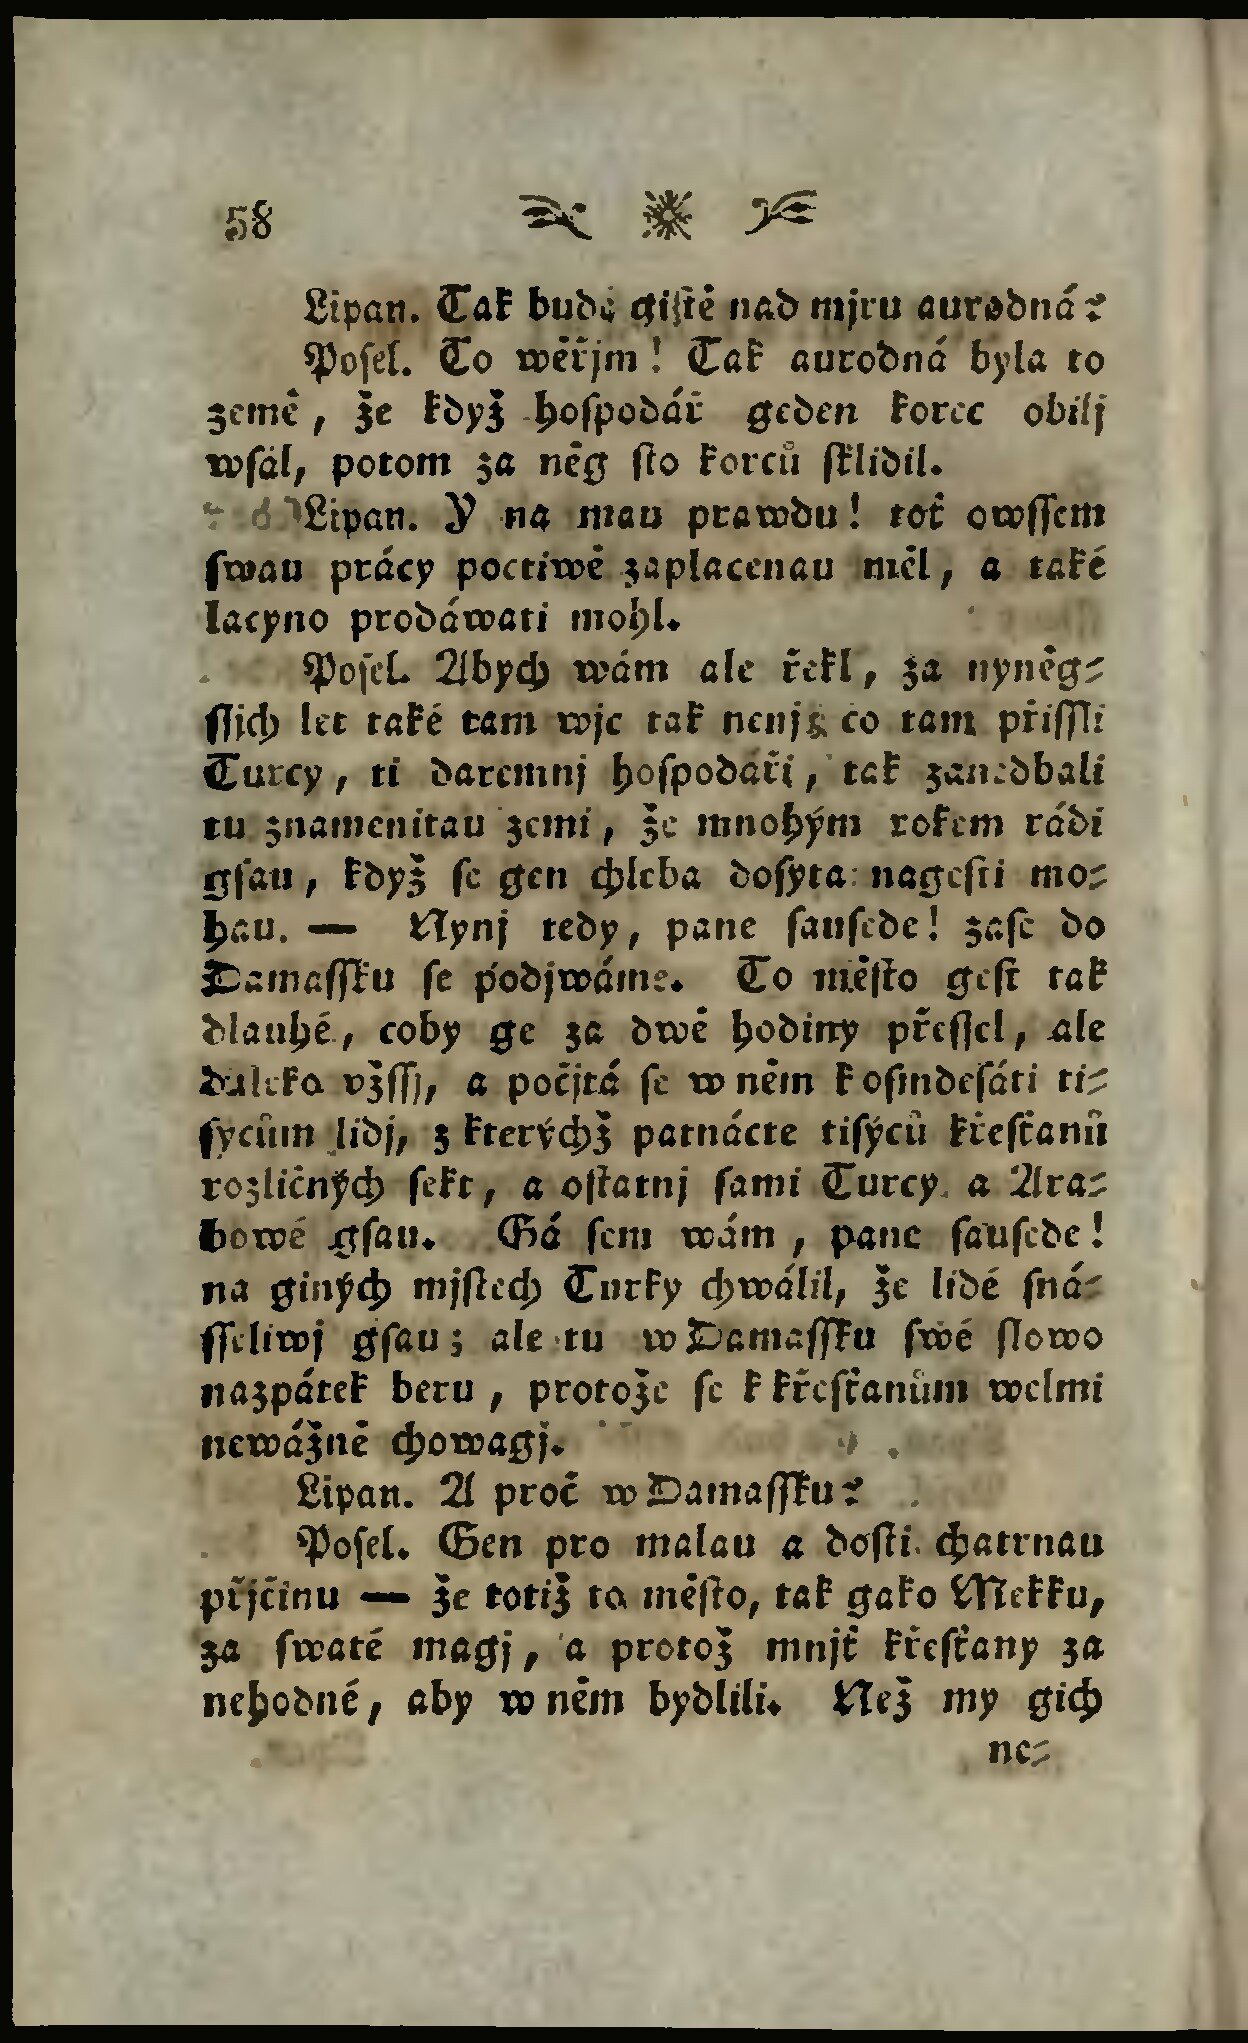 58
Lipan. Tak bude gistě nad mjru aurodná?
Posel. To wěřjm! Tak aurodná byla to
země, že když hospodář geden korec obilj
wsál, potom za něg sto korců sklidil.
Lipan. Y na mau prawdu! toť owssem
swau prácy poctiwě zaplacenau měl, a také
lacyno prodáwati mohl.
Posel. Abych wám ale řekl, za nyněg-
ssjch let také tam wjc tak nenj; co tam přissli
Turcy, ti daremnj hospodáři, tak zanedbali
tu znamenitau zemi, že mnohým rokem rádi
gsau, když se gen chleba dosyta nagesti mo-
hau. — Nynj tedy, pane sausede! zase do
Damassku se podjwáme. To město gest tak
dlauhé, coby ge za dwě hodiny přessel, ale
daleko vžssj, a počjtá se w něm k osmdesáti ti-
sycům lidj, z kterýchž patnácte tisýců křesťanů
rozličných sekt, a ostatnj sami Turcy a Ara-
bowé gsau. Gá sem wám, pane sausede!
na giných mjstech Turky chwálil, že lidé sná-
sseliwj gsau; ale tu w Damassku swé slowo
nazpátek beru, protože se k křesťanům welmi
newážně chowagj.
Lipan. A proč w Damassku?
Posel. Gen pro malau a dosti chatrnau
přjčinu — že totiž to město, tak gako Mekku,
za swaté magj, a protož mnjť křesťany za
nehodné, aby w něm bydlili. Než my gich
ne-